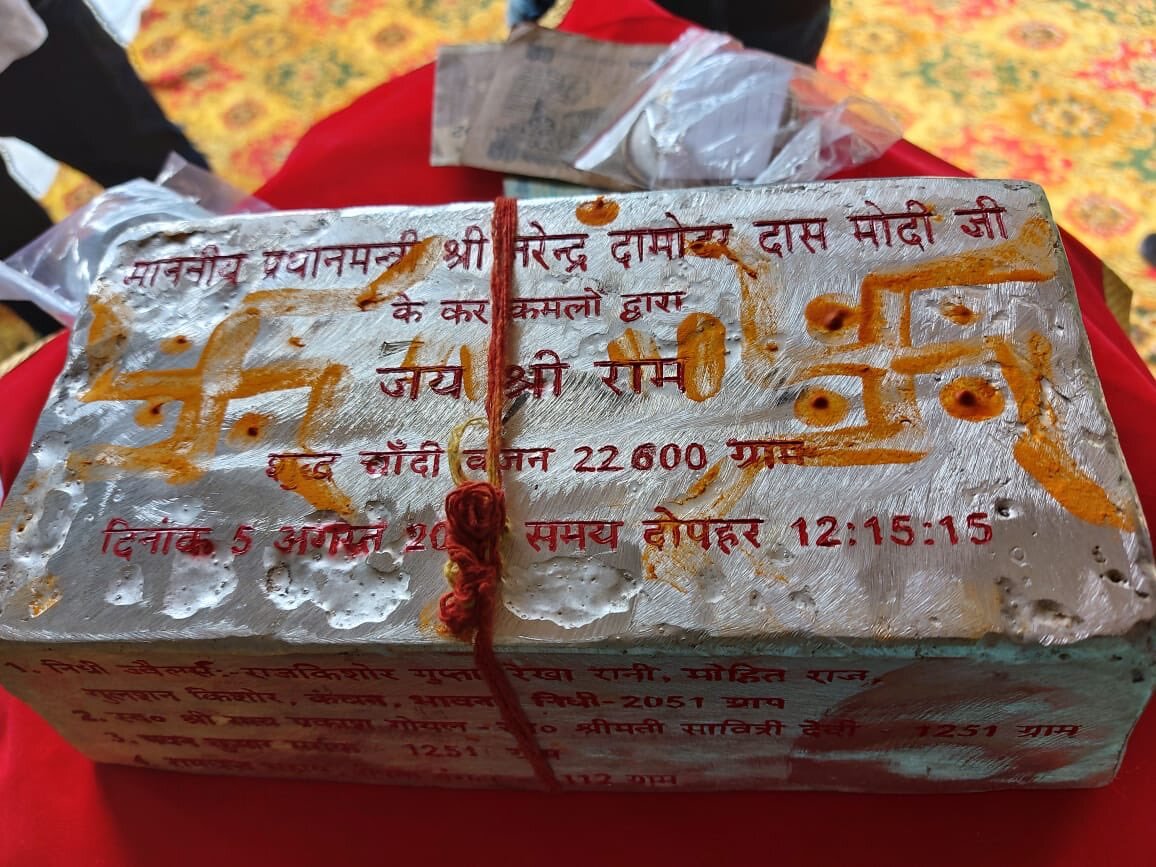 माननीय प्रधानमन्त्री श्री नरेन्द्र दामोदर दास मोदी जी
के कर कमलों द्वारा
जय श्री राम
शुद्ध चाँदी वजन 22600 ग्राम
दिनांक 5 अगस्त 20 समय दोपहर 12:15:15
1. निधी ज्वैलर्स:- राजकिशोर गुप्ता रेखा रानी, मोहित राज,
गुलशन किशोर, कंचन, भावना निधी-2051 ग्राम
2. स्व० श्री प्रकाश गोयल - श्रीमती सावित्री देवी - 1251 ग्राम
3. कुमार 1251 ग्राम
4. 112 ग्राम